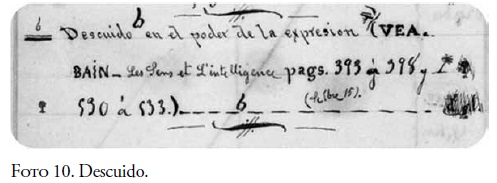 6
Descuido b en el poder de la expresion (VEA.
BAIN_ Les Sens et L'intelligence pags. 393 á 398 y
530 á 533.)
b
FOTO 10. Descuido.